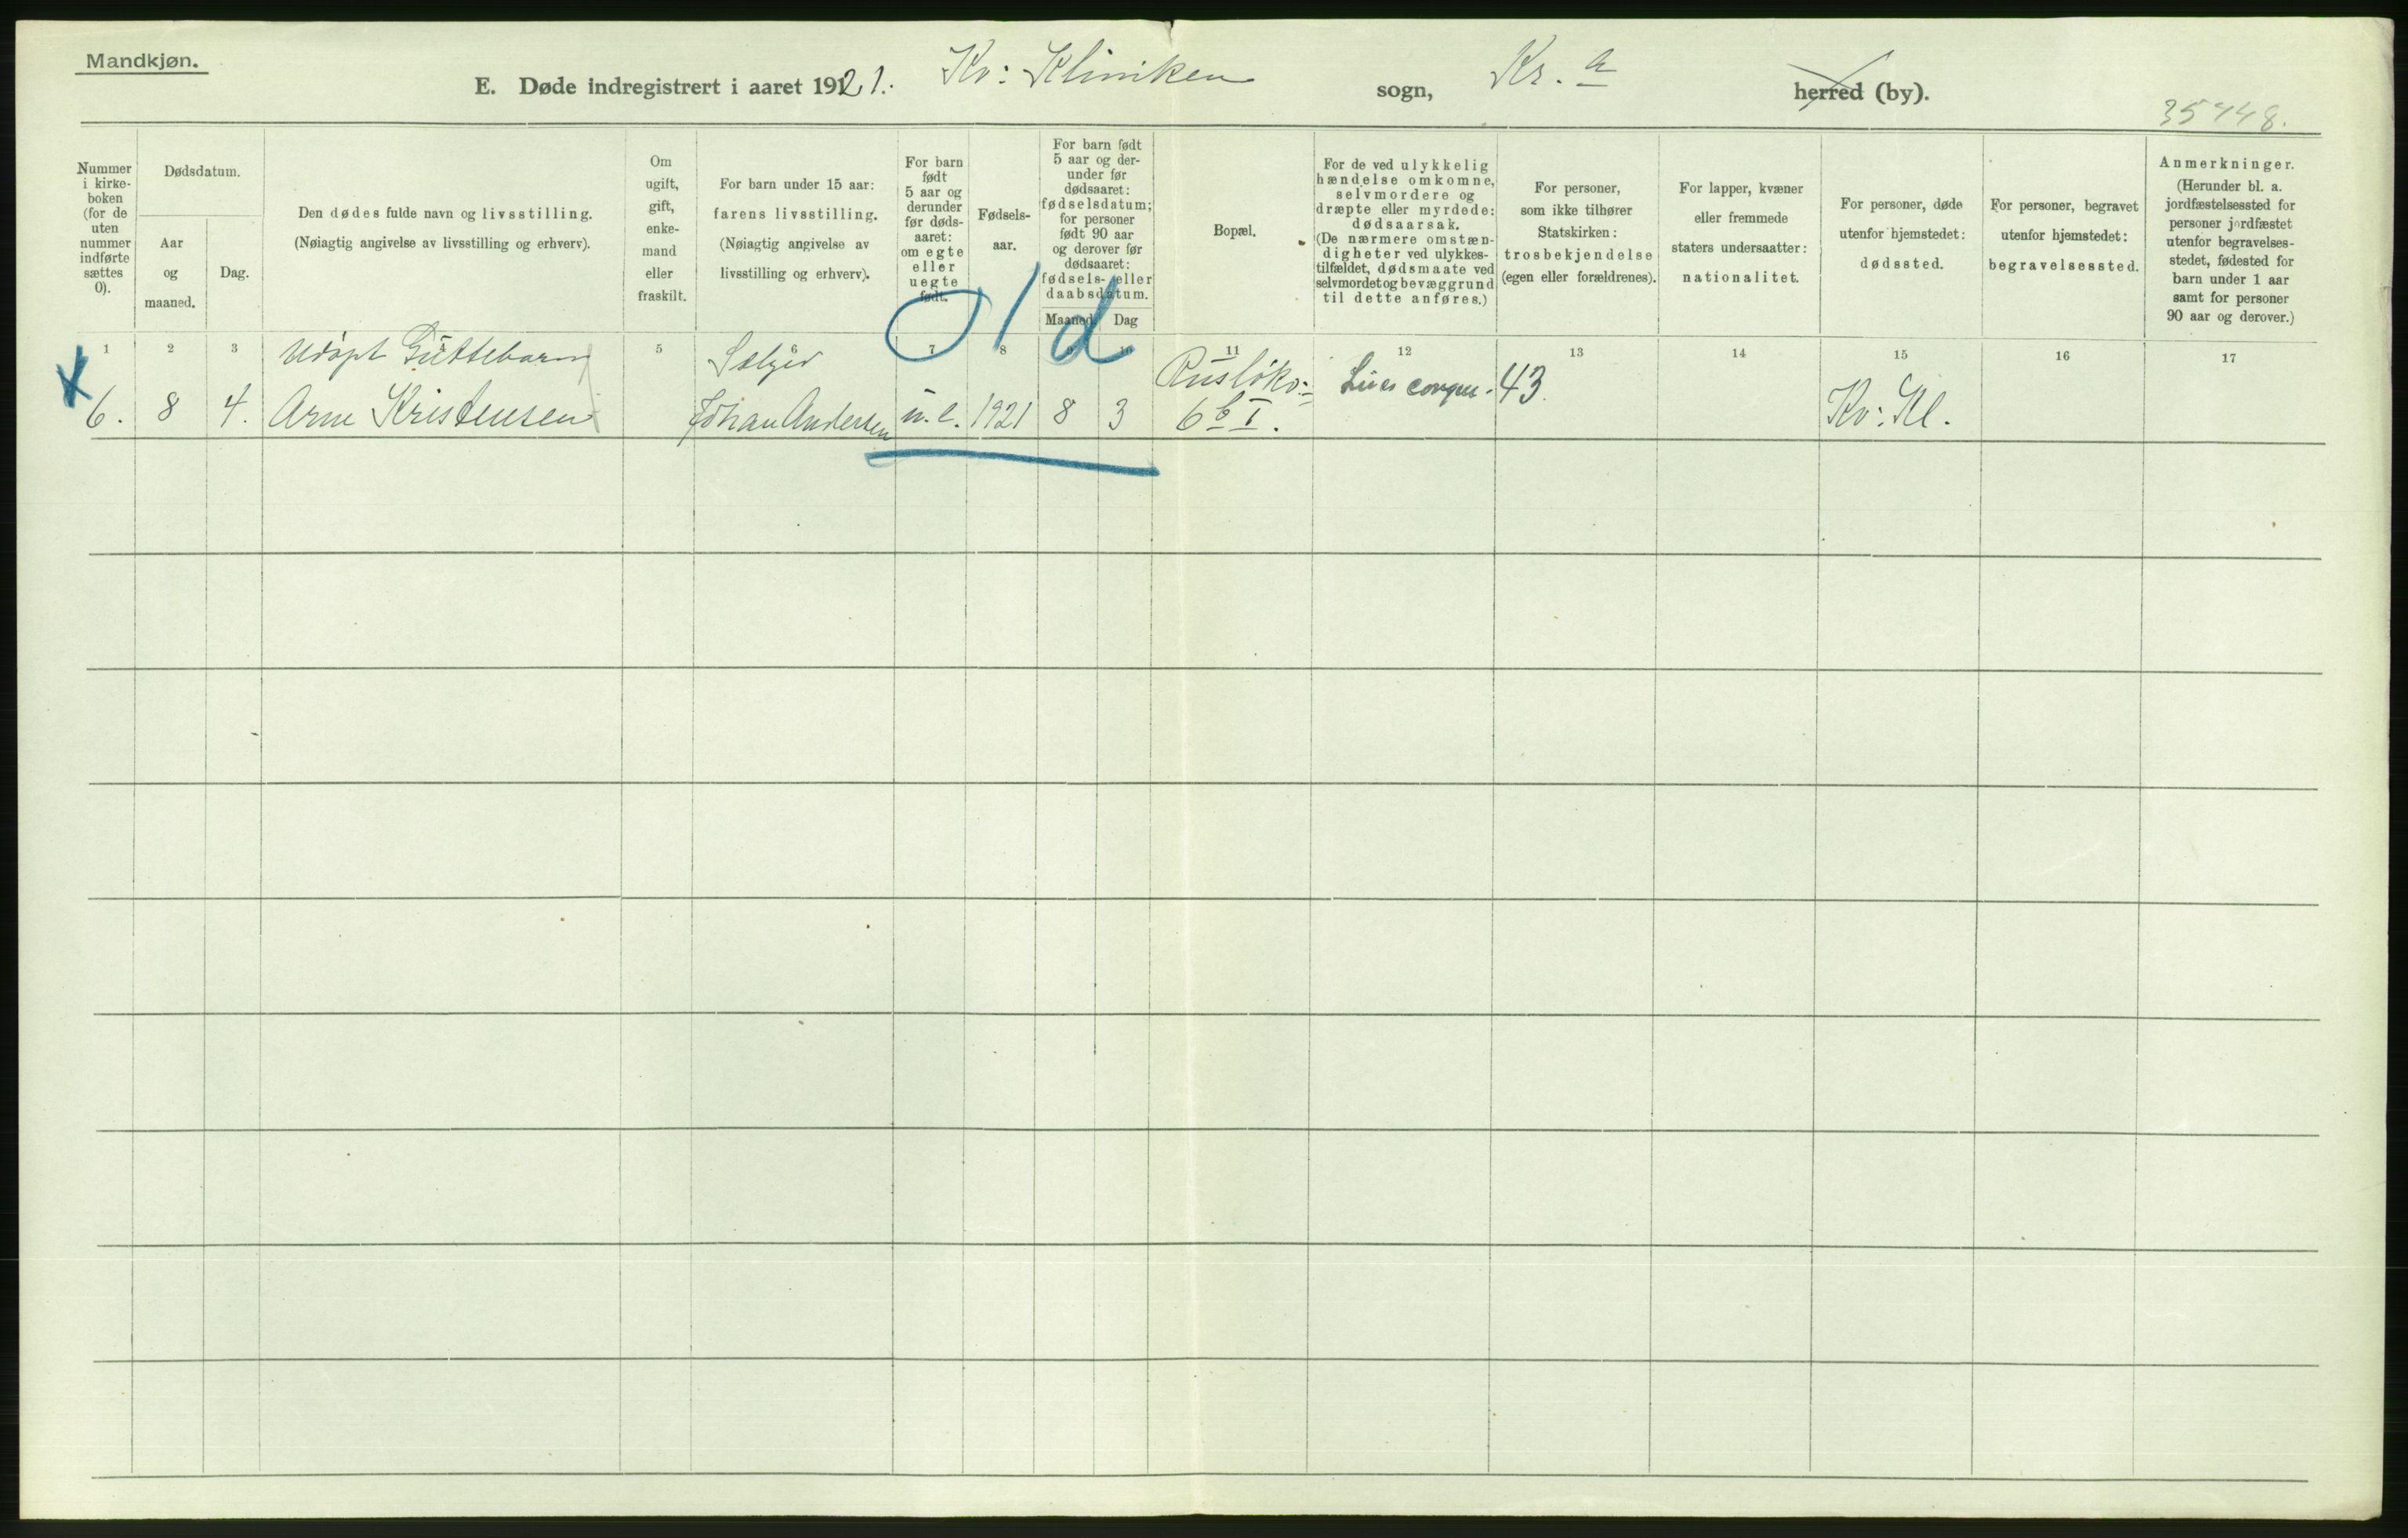 Mandkjøn.
E. Døde indregistrert i aaret 1921. Kv: Kliniken sogn, Kr. a herred (by).
35448.
Nummer i kirke-boken (for de uten nummer indførte sættes 0).
Dødsdatum.
Aar og maaned.
Dag.
Den dødes fulde navn og livsstilling.
(Nøiagtig angivelse av livsstilling og erhverv).
Om ugift, gift, enke-mand eller fraskilt.
For barn under 15 aar:
farens livsstilling.
(Nøiagtig angivelse av
livsstilling og erhverv).
For barn født 5 aar og derunder før døds-aaret: om egte eller uegte født.
Fødsels-aar.
For barn født 5 aar og der-under før dødsaaret: fødselsdatum; for personer født 90 aar og derover før dødsaaret: fødsels- eller daabsdatum.
Maaned. Dag
Bopæl.
For de ved ulykkelig hændelse omkomne, selvmordere og dræpte eller myrdede: dødsaarsak.
(De nærmere omstæn-digheter ved ulykkes-tilfældet, dødsmaate ved selvmordet og bevæggrund til dette anføres.)
For personer, som ikke tilhører Statskirken: trosbekjendelse (egen eller forældrenes).
For lapper, kvæner eller fremmede staters undersaatter: nationalitet.
For personer, døde utenfor hjemstedet: dødssted.
For personer, begravet utenfor hjemstedet: begravelsessted.
Anmerkninger.
(Herunder bl. a. jordfæstelsessted for personer jordfæstet utenfor begravelses-stedet, fødested for barn under 1 aar samt for personer 90 aar og derover.)
1 2 3 4 5 6 7 8 9 10 11 12 13 14 15 16 17
Old
Udöpt Guttebarn Sælger Rusløkv:
6. 8 4. Arne Kristensen Johan Andersen u.e. 1921 8 3 6 b I. Lues congen. 43. Kv: Kl.